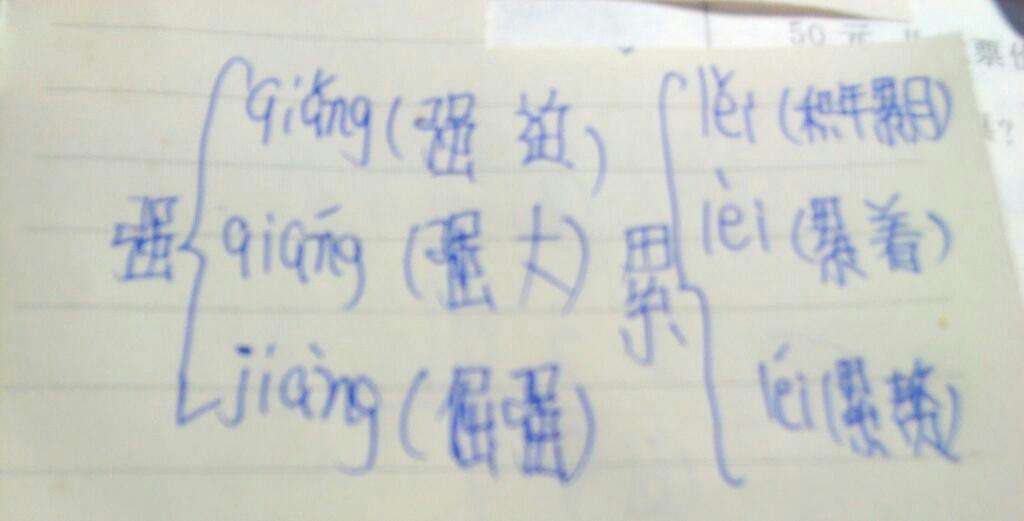 强 qiǎng (强迫)
qiáng (强大)
jiàng (倔强)
累 lěi (积年累月)
lèi (累着)
léi (累赘)
50 元
票价